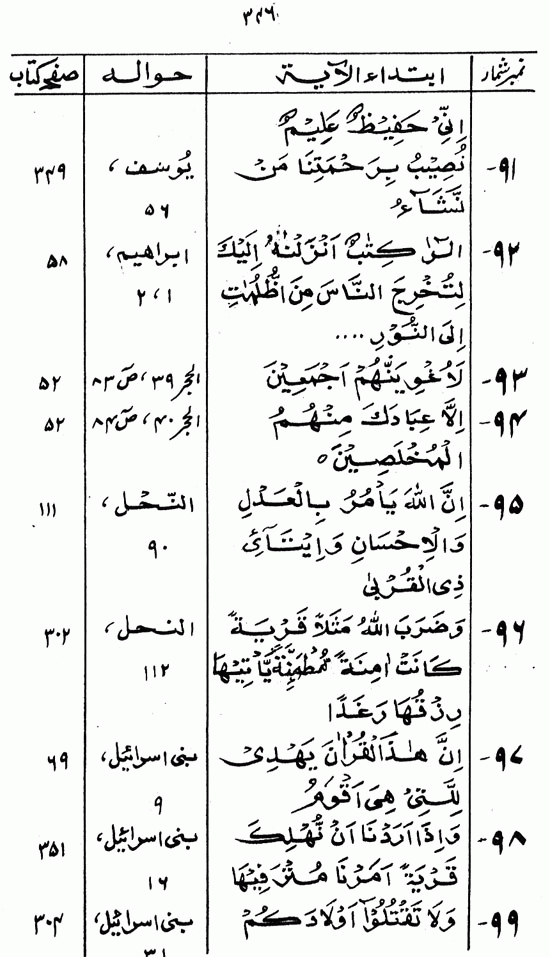 ۳۴۶
نمبر شمار ابتداء الآية حواله صفحہ کتاب
اِنِّىْ حَفِيْظٌ عَلِيْمٌ
۹۱- نُصِيْبُ بِرَحْمَتِنَا مَنْ يُوسف، ۳۴۹
نَّشَآءُ ۵۶
۹۲- الٓرٰ كِتٰبٌ اَنْزَلْنٰهُ اِلَيْكَ ابراهيم، ۵۸
لِتُخْرِجَ النَّاسَ مِنَ الظُّلُمٰتِ ۱، ۲
اِلَى النُّوْرِ ....
۹۳- لَاُغْوِيَنَّهُمْ اَجْمَعِيْنَ الحجر ۳۹، صٓ ۸۳ ۵۲
۹۴- اِلَّا عِبَادَكَ مِنْهُمُ الحجر ۴۰، صٓ ۸۴ ۵۲
الْمُخْلَصِيْنَ ه
۹۵- اِنَّ اللّٰهَ يَاْمُرُ بِالْعَدْلِ النّحل، ۱۱۱
وَالْاِحْسَانِ وَاِيْتَآئِ ۹۰
ذِى الْقُرْبٰى
۹۶- وَضَرَبَ اللّٰهُ مَثَلًا قَرْيَةً النحل، ۳۰۲
كَانَتْ اٰمِنَةً مُّطْمَئِنَّةً يَّاْتِيْهَا ۱۱۲
رِزْقُهَا رَغَدًا
۹۷- اِنَّ هٰذَا الْقُرْاٰنَ يَهْدِىْ بنى اسرائيل، ۶۹
لِلَّتِىْ هِىَ اَقْوَمُ ۹
۹۸- وَاِذَا اَرَدْنَا اَنْ نُّهْلِكَ بنى اسرائيل، ۳۵۱
قَرْيَةً اَمَرْنَا مُتْرَفِيْهَا ۱۶
۹۹- وَلَا تَقْتُلُوْا اَوْلَادَكُمْ بنى اسرائيل، ۳۰۴
۳۱